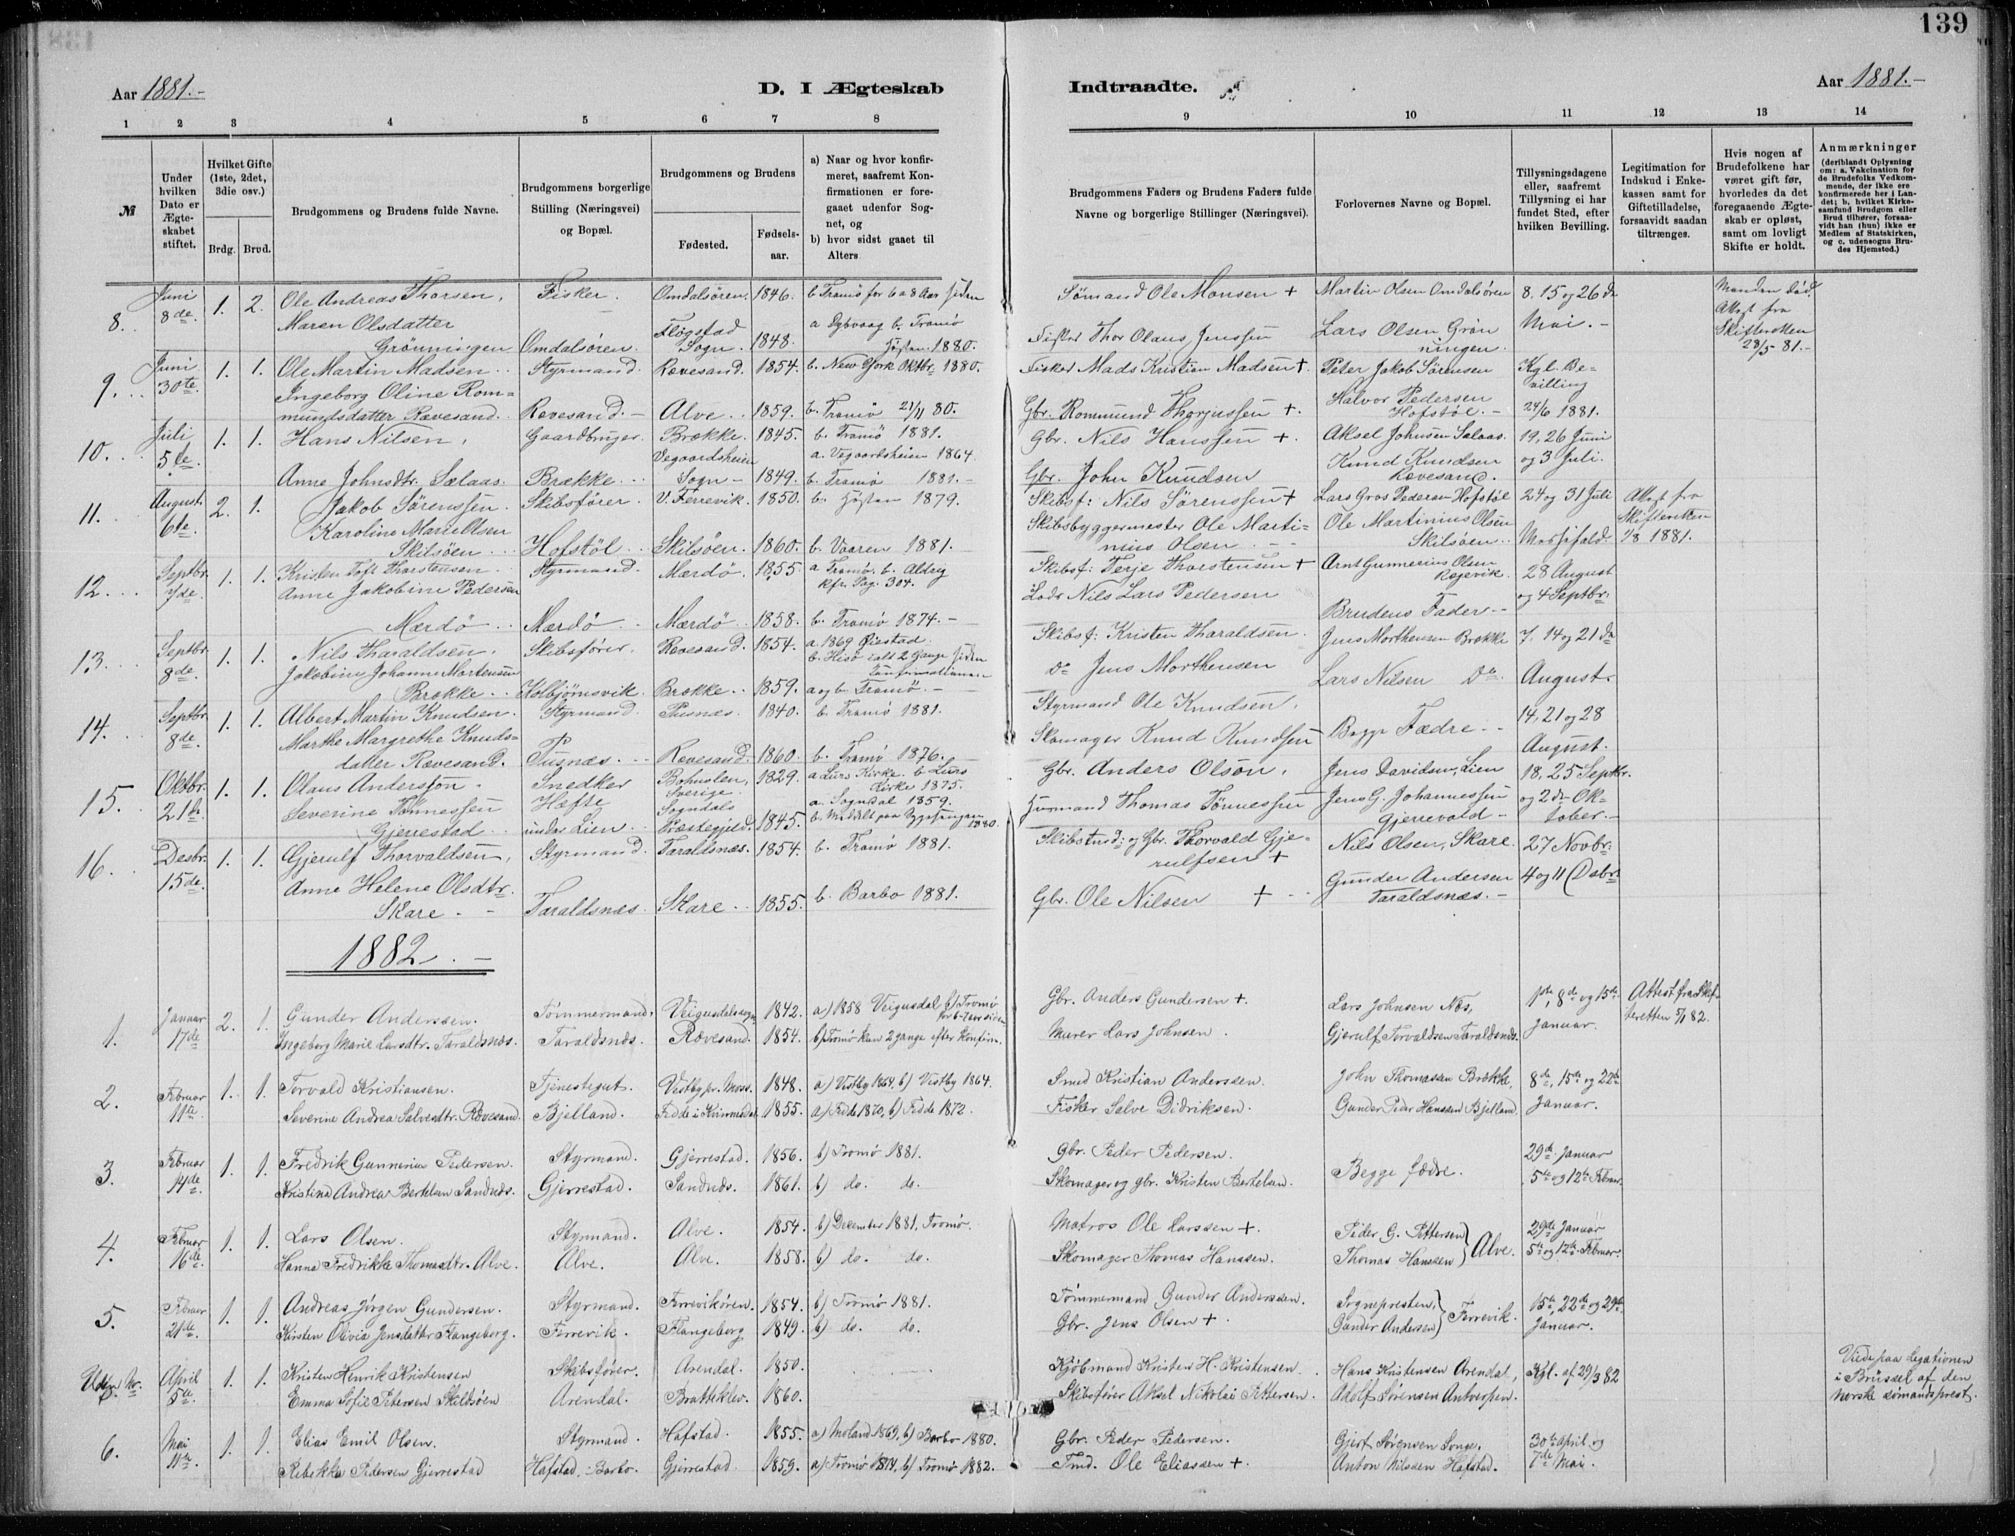 139
Aar 1881.-
D. I Ægteskab
Indtraadte.
Aar 1881.-
1 2 3 4 5 6 7 8 9 10 11 12 13 14
№
Under hvilken Dato er Ægteskabet stiftet.
Hvilket Gifte (1ste, 2det, 3die osv.)
Brdg. Brud.
Brudgommens og Brudens fulde Navne.
Brudgommens borgerlige Stilling (Næringsvei) og Bopæl.
Brudgommens og Brudens
Fødested. Fødselsaar.
a) Naar og hvor konfirmeret, saafremt Konfirmationen er foregaaet udenfor Sognet, og
b) hvor sidst gaaet til Alters
Brudgommens Faders og Brudens Faders fulde Navne og borgerlige Stillinger (Næringsvei).
Forlovernes Navne og Bopæl.
Tillysningsdagene eller, saafremt Tillysning ei har fundet Sted, efter hvilken Bevilling.
Legitimation for Indskud i Enkekassen samt for Giftetilladelse, forsaavidt saadan tiltrænges.
Hvis nogen af Brudefolkene har været gift før, hvorledes da det foregaaende Ægteskab er opløst, samt om lovligt Skifte er holdt.
Anmærkninger (deriblandt Oplysning om: a. Vakcination for de Brudefolks Vedkommende, der ikke ere konfirmerede her i Landet; b. hvilket Kirkesamfund Brudgom eller Brud tilhører, forsaavidt han (hun) ikke er Medlem af Statskirken, og c. udensogns Brudes Hjemsted.)
8. Juni 8de. 1. 2. Ole Andreas Thorsen, Fisker. Omdalsören. 1846. b. Tromö for 6 a 8 Aar siden Sömand Ole Monsen + Martin Olsen Omdalsören 8. 15 og 26 de Manden död.
Maren Olsdatter Grönningen Omdalsören. Sogn. 1848. a Dybvaag b. Tromö Hösten 1880. Fisker Thor Olaus Jenssen Lars Olsen Grönningen. Mai.- Attest fra Skifteretten 28/5 81.-
9. Juni 30te. 1. 1. Ole Martin Madsen Styrmand. Rævesand. 1854. b. New York Oktbr. 1880. Fisker Mads Kristian Madsen + Peter Jakob Sörensen Kgl. Bevilling
Ingeborg Oline Rommundsdatter Rævesand. Rævesand.- Alve. 1859. b. Tromö 21/11 80. Gbr. Rommund Thorjussen +. Halvor Pedersen Hofstöl.- 24/6 1881.
10. Juli 5te. 1. 1. Hans Nilsen, Gaardbruger. Brække. 1845. b. Tromö 1881. Gbr. Nils Hanssen + Aksel Johnsen Salaas. 19, 26 Juni
Anne Johnsdtr. Sælaas. Brække. Vegaardsheien Sogn- 1849. a. Vegaardsheien 1864. b. Tromö 1881.- Gbr. John Knudsen Knud Knudsen Rævesand. og 3 Juli.
11. August. 6te. 2. 1. Jakob Sörenssen. Skibsförer. V. Færevik. 1850. b. Hösten 1879. Skibsf: Nils Sörenssen + Lars Gros Pedersen Hofstöl 24 og 31 Juli Attest fra
Karoline Marie Olsen Skilsöen. Hofstöl. Skilsöen. 1860. b. Vaaren 1881. Skibsbyggermester Ole Martinius Olsen. Ole Martinius Olsen Skilsöen. Skifteretten 1/8 1881.
12. Septbr. 7de. 1. 1. Kristen Toft Thorstensen. Styrmand. Mærdö. 1855. a Tromö, b. Aldrig kfr. Pag. 304. Skibsf: Terje Thorstensen + Arnt Gunnerius Olsen 28 August
Anne Jakobine Pedersen Mærdö. Mærdö. Mærdö. 1858. b. Tromö 1874.- Lods Nils Lars Pedersen Brudens Fader.- og 4 Septbr.
13. Septbr. 8de. 1. 1. Nils Tharaldsen. Skibsförer. Rævesand. 1854. a. 1869 Öiestad. b. Hisö ialt 2 Gange siden Konfirmationen Skibsf: Kristen Tharaldsen. Jens Morthensen Brække 7. 14 og 21 de
Jakobine Johanne Mortensen Brække. Kolbjörnsvik. Brække. 1859. a og b. Tromö.- do Jens Morthensen Lars Nilsen Do. August.
14. Septbr. 8de. 1. 1. Albert Martin Knudsen. Styrmand. Pusnæs. 1840. b. Tromö 1881. Styrmand Ole Knudsen. Begge Fædre.- 14, 21 og 28
Marthe Margrethe Knudsdatter Rævesand. Pusnæs. Rævesand. 1860. b. Tromö 1876. Skomager Knud Knudsen August.
15. Oktbr. 21de. 1. 1. Olaus Andersson. Snedker Bohuslen, Sverige. 1829. a Lurs Kirke. b Lurs Kirke 1875. Gbr. Anders Olsön. Jens Davidsen, Lien 18, 25 Septbr.
Severine Tönnessen Gjerrestad. Hæfte under Lien. Sogndals Præstegjeld. 1845. a. Sogndal 1859. Husmand Thomas Tönnessen Jens G. Johannessen og 2 de Oktober.-
16. Desbr. 15de. 1. 1. Gjerulf Thorvaldsen, Styrmand. Taraldsnæs. 1854. b. Tromö 1881. Skibstmd: og Gbr. Thorvald Gjerulfsen + Nils Olsen, Skare. 27 Novbr.
Anne Helene Olsdtr. Skare.- Taraldsnæs. Skare. 1855. b. Barbo 1881. Gbr. Ole Nilsen + Gunder Andersen Taraldsnæs.- 4 og 11 Dsbr.
1882.-
1. Januar 17de 2. 1. Gunder Anderssen. Tömmermand. 1842. a) 1858 Veigusdal b) Tromö Gbr. Anders Gundersen +. Lars Johnsen Næs, 1ste, 8de og 15de Attest fra Skifteretten 5/1 82.
Ingeborg Marie Larsdtr. Taraldsnæs. Taraldsnæs. Rævesand. 1854. b) Tromö kun 2 gange efter Konfirm. Murer Lars Johnsen. Gjerulf Torvaldsen Taraldsnæs. Januar.
2. Februar 11te. 1. 1. Torvald Kristiansen. Tjenestegut. Vestby pr. Moss. 1848. a) Vestby 1864, b) Vestby 1864. Smed Kristian Anderssen. John Thomassen Brække, 8de, 15de og 22de
Severine Andrea Salvesdtr. Rævesand. Bjelland. Fedde i Kvinesdal 1855. a) Fedde 1870, b) Fedde 1872. Fisker Salve Didriksen. Gunder Peder Hanssen Bjelland. Januar.
3. Februar 14de. 1. 1. Fredrik Gunnerius Pedersen. Styrmand. Gjerrestad. 1856. b) Tromö 1881. Gbr. Peder Pedersen. Begge fædre. 29de Januar
Kristina Andrea Bertelsen Sandnæs. Gjerrestad. Sandnæs. 1861. b) do. do. Skomager og gbr. Kristen Bertelsen. 5te og 12te Februar.
4. Februar 16de 1. 1. Lars Olsen. Styrmand. Alve. 1854. b) December 1881, Tromö. Matros Ole Larssen +. Peder G. Pettersen 29de Januar
Hanna Fredrikke Thomasdtr. Alve. Alve. Alve. 1858. b) do. do. Skomager Thomas Hanssen. Thomas Hanssen } Alve. 5te og 12te Februar.
5. Februar 21de. 1. 1. Andreas Jörgen Gundersen. Styrmand. Færvikören. 1854. b) Tromö 1881. Tömmermand Gunder Anderssen. Sognepresten, 15de, 22de og 29de
Kirsten Olivia Jensdatter Flangeborg. Færevik. Flangeborg 1849. b) do. do. Gbr. Jens Olsen +. Gunder Andersen } Færevik. Januar.
Uden Nr. April 5te 1. 1. Kristen Henrik Kristensen Skibsförer. Arendal. 1850. Kjöbmand Kristen H. Kristensen. Hans Kristensen Arendal, Kgl. af 29/3 82 Viede paa Legationen
Emma Sofie Petersen Skildsöen Arendal. Brattekler. 1860. Skibsförer Aksel Nikolai Pettersen. Adolf Sörensen Antverpen. i Brüssel af den norske sömandsprest.
6. Mai 11te 1. 1. Elias Emil Olsen. Styrmand. Hafstad. 1855. a) Moland 1869, b) Barbo 1880. Gbr. Peder Pedersen. Gjert Sörensen Songe. 30te April og
Rebekka Pedersen Gjerrestad Hafstad, Barbo. Gjerrestad. 1859. a) Tromö 1874, b) Tromö 1882. Tmd. Ole Eliassen +. Anton Nilssen Hafstad. 7de Mai.